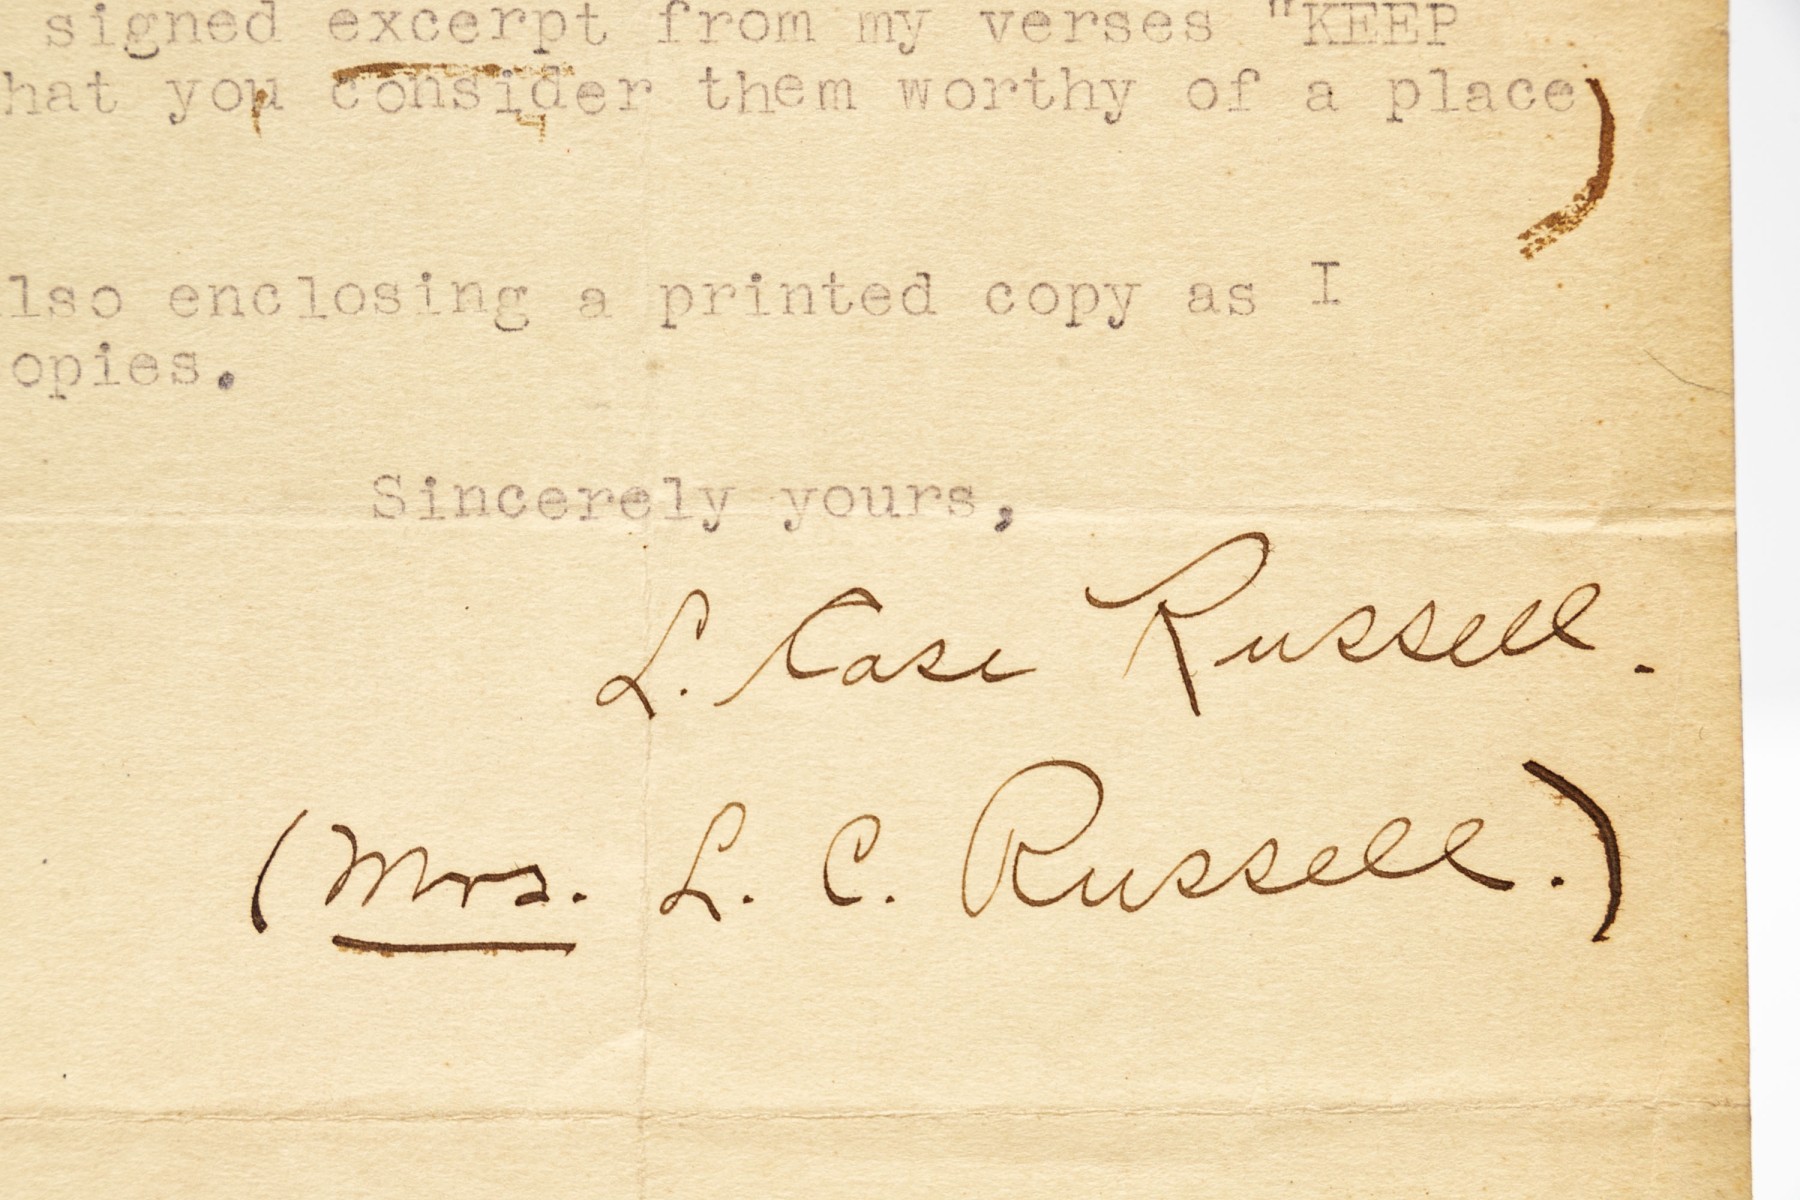 signed excerpt from my verses "KEEP
hat you consider them worthy of a place
lso enclosing a printed copy as I
opies.
Sincerely yours,
L. Case Russell.
(Mrs. L. C. Russell.)